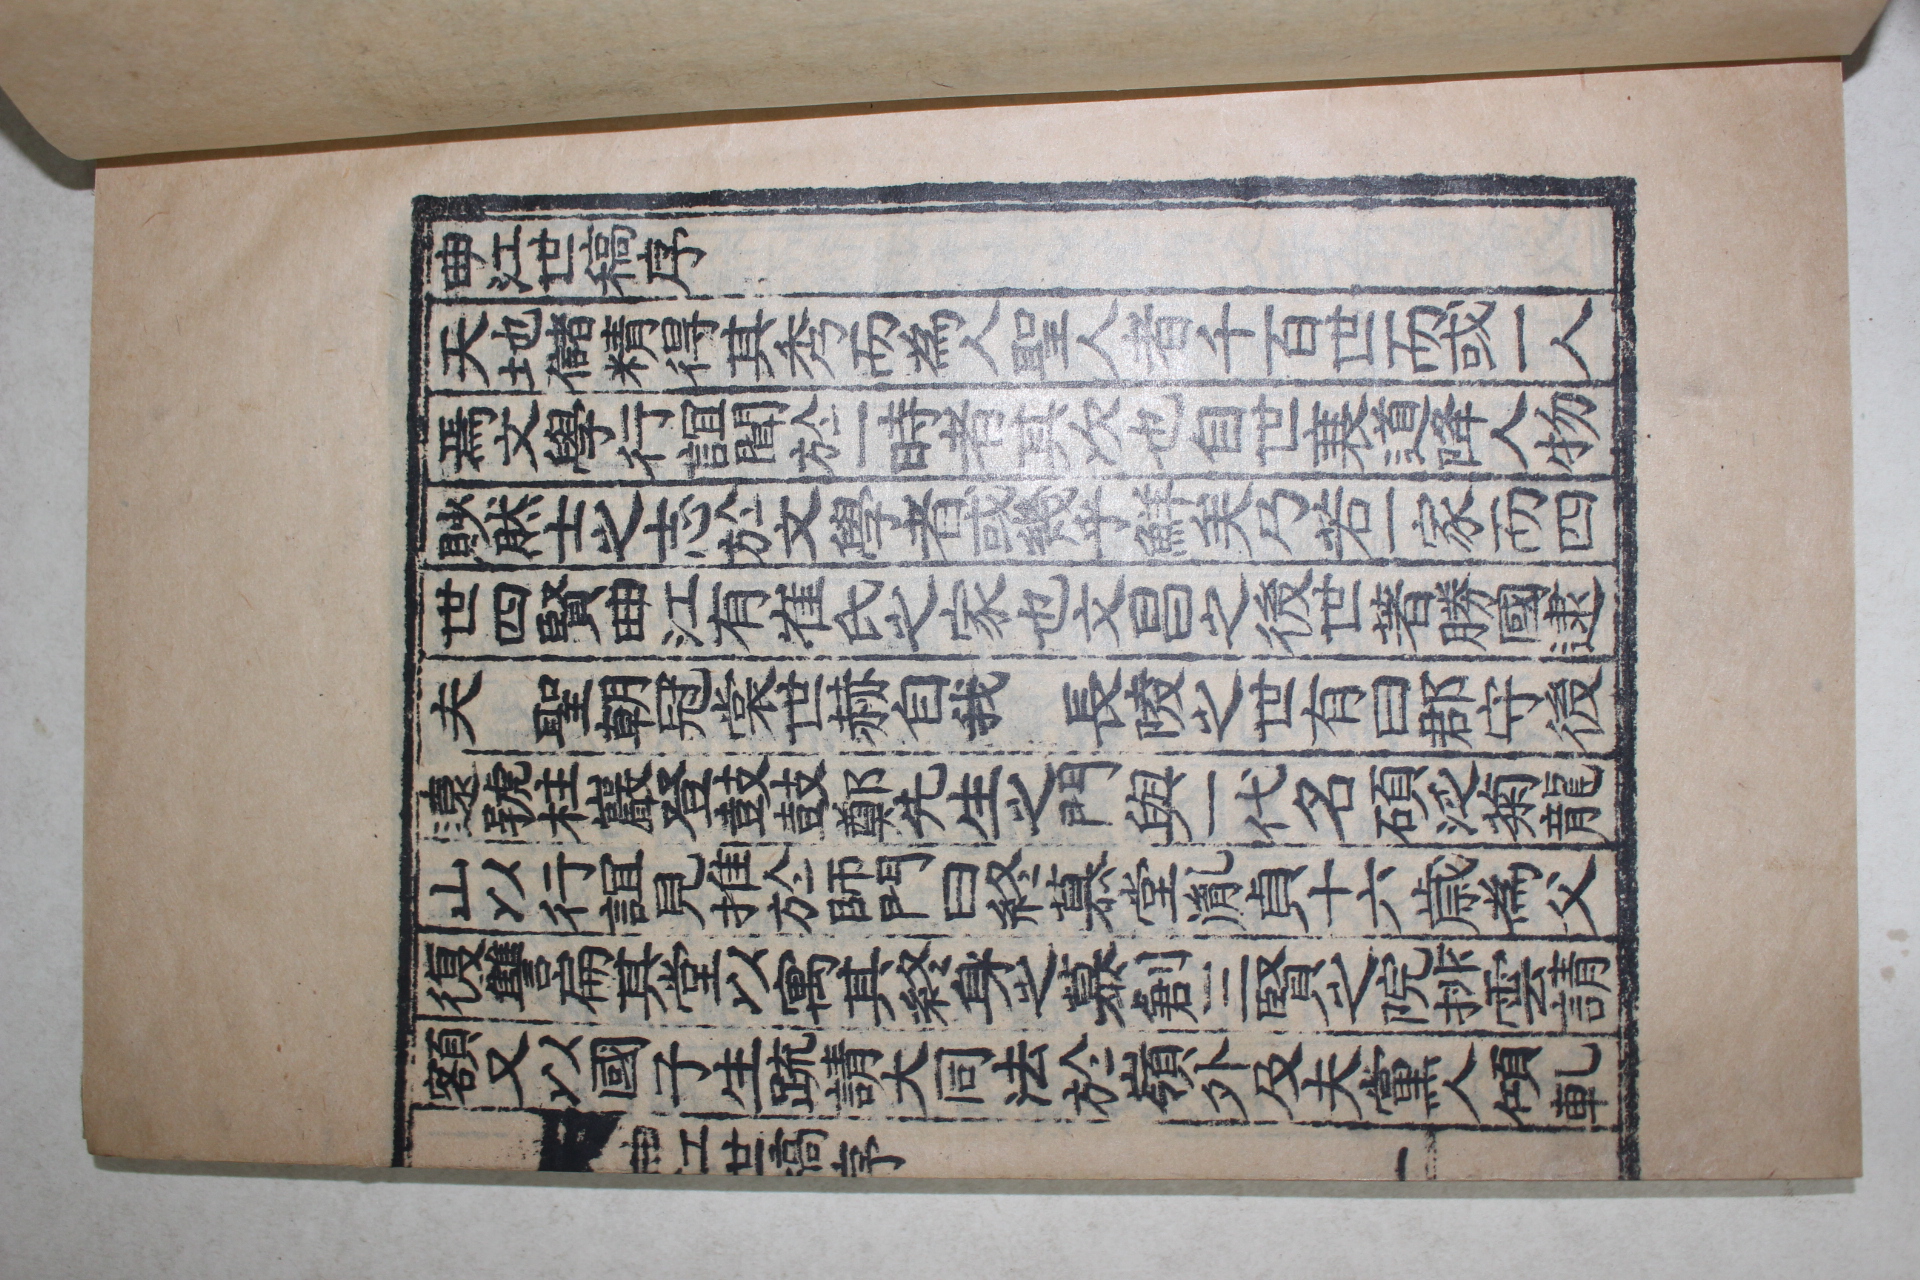 曲江世稿序
天地儲精得其秀而爲人聖人者千百世而或一人
焉文學行誼聞於一時者其次也自世衰道降人物
眇然士之志於文學者或幾乎鮮矣乃若一家而四
世四賢曲江有崔氏之家也文昌之後世著勝國逮
夫 聖朝冠裳世赫自我 長陵之世有曰郡守後
遠號柱巖登鼓鼓鄭先生之門與一代名碩泛菊龍
山以行誼見推於師門曰終慕堂胤貞十六歲爲父
復讐扁其堂以寓其終身之慕創三賢之院排雲請
額又以國子生疏請大同法於嶺外及夫黨人傾軋
曲江世稿序 一